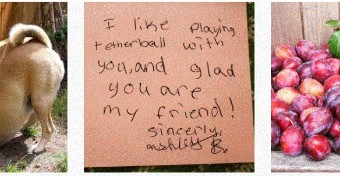 I like playing
tetherball with
you, and glad
you are
my friend!
sincerely,
Ashley B.